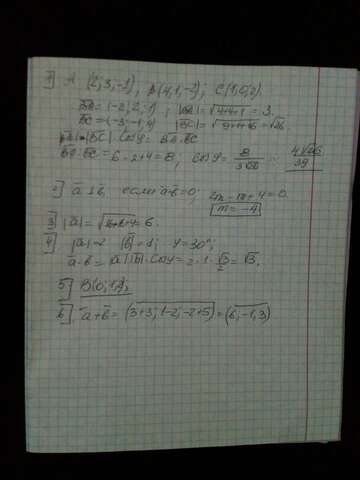 7] A (2; 3; -1); B(4; 1; -2); C(1; 0; 2).
BA = (-2; 2; 1), |BA| = √4+4+1 = 3.
BC = (-3; -1; 4) |BC| = √9+1+16 = √26.
|BA| · |BC| cosφ = BA · BC
BA · BC = 6 - 2 + 4 = 8, cosφ = 8/3√26 = 4√26/39
2] a ⊥ b, если a·b = 0; 2m - m + 4 = 0.
m = -4
3] |a| = √ = 6.
4] |a| = 2 |b| = 1; φ = 30°;
a · b = |a| |b| · cosφ = 2 · 1 · √3/2 = √3.
5] B(0; 1; ).
6] a + b = (3+3; 1-2; -2+5) = (6; -1; 3)